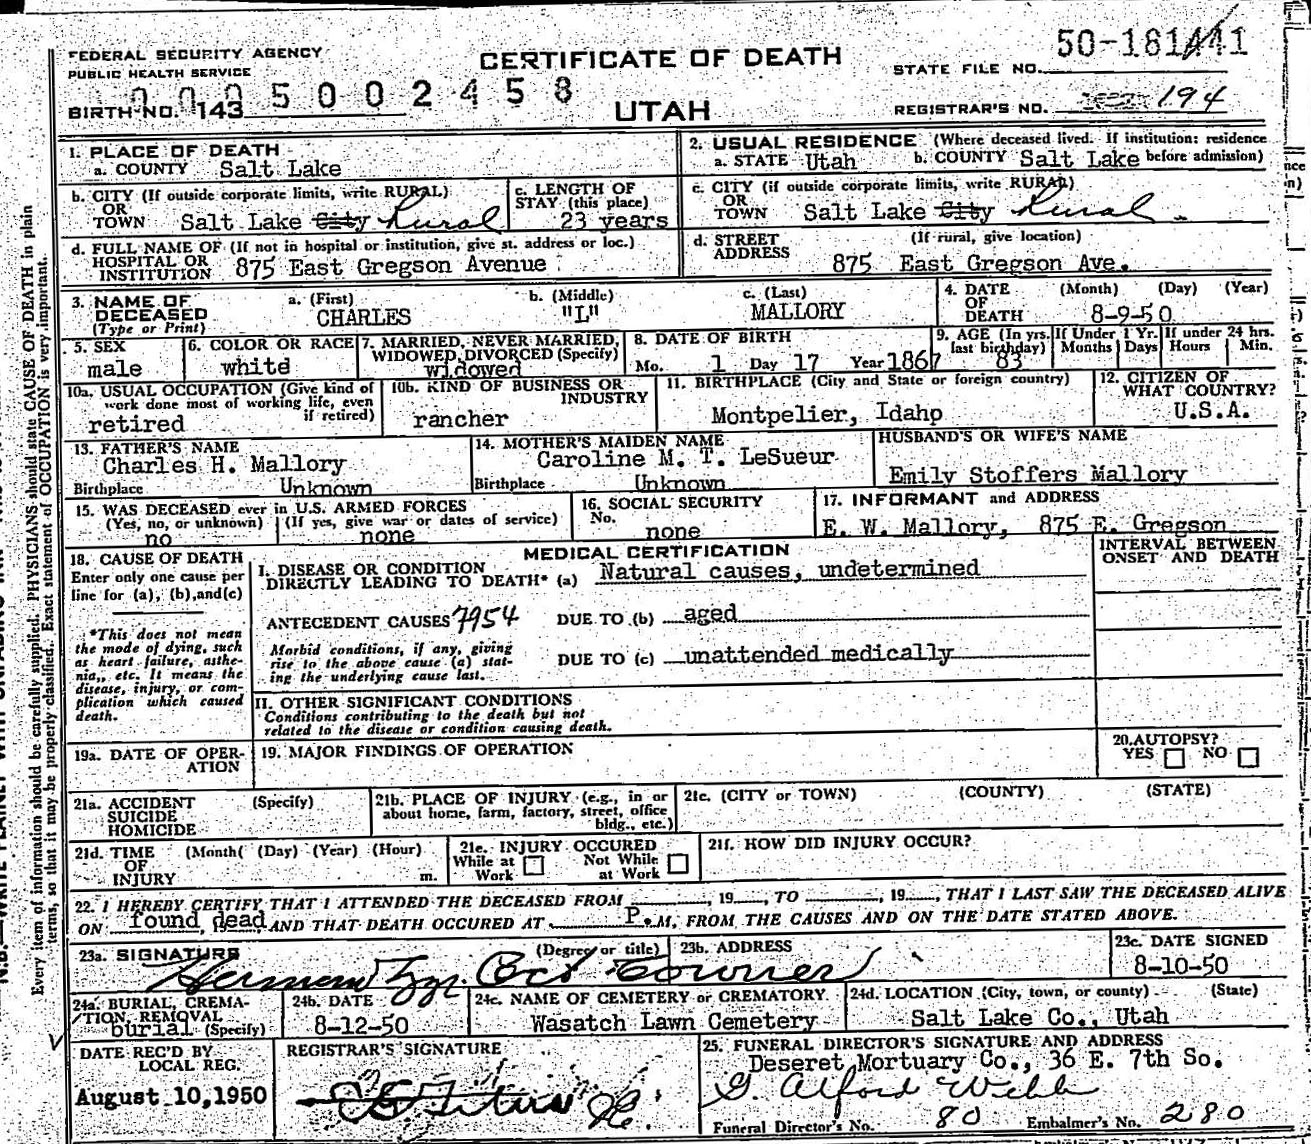 FEDERAL SECURITY AGENCY
PUBLIC HEALTH SERVICE
CERTIFICATE OF DEATH
UTAH
STATE FILE NO. 50-181441
BIRTH NO. 143 5002458
REGISTRAR'S NO. 194
1. PLACE OF DEATH
a. COUNTY Salt Lake
2. USUAL RESIDENCE (Where deceased lived. If institution: residence before admission)
a. STATE Utah b. COUNTY Salt Lake
b. CITY (If outside corporate limits, write RURAL)
OR
TOWN Salt Lake City Rural
c. LENGTH OF
STAY (this place)
23 years
c. CITY (if outside corporate limits, write RURAL)
OR
TOWN Salt Lake City Rural
d. FULL NAME OF (If not in hospital or institution, give st. address or loc.)
HOSPITAL OR
INSTITUTION 875 East Gregson Avenue
d. STREET (If rural, give location)
ADDRESS
875 East Gregson Ave.
3. NAME OF
DECEASED
(Type or Print)
a. (First)
CHARLES
b. (Middle)
"L"
c. (Last)
MALLORY
4. DATE (Month) (Day) (Year)
OF
DEATH 8-9-50
5. SEX
male
6. COLOR OR RACE
white
7. MARRIED, NEVER MARRIED,
WIDOWED, DIVORCED (Specify)
widowed
8. DATE OF BIRTH
Mo. 1 Day 17 Year 1867
9. AGE (In yrs. last birthday) 83
If Under 1 Yr. Months Days
If under 24 hrs. Hours Min.
10a. USUAL OCCUPATION (Give kind of
work done most of working life, even
if retired)
retired
10b. KIND OF BUSINESS OR
INDUSTRY
rancher
11. BIRTHPLACE (City and State or foreign country)
Montpelier, Idaho
12. CITIZEN OF
WHAT COUNTRY?
U.S.A.
13. FATHER'S NAME
Charles H. Mallory
Birthplace Unknown
14. MOTHER'S MAIDEN NAME
Caroline M. T. LeSueur
Birthplace Unknown
HUSBAND'S OR WIFE'S NAME
Emily Stoffers Mallory
15. WAS DECEASED ever in U.S. ARMED FORCES
(Yes, no, or unknown) (If yes, give war or dates of service)
no none
16. SOCIAL SECURITY
No.
none
17. INFORMANT and ADDRESS
E. W. Mallory, 875 E. Gregson
18. CAUSE OF DEATH
Enter only one cause per
line for (a), (b), and (c)
*This does not mean
the mode of dying, such
as heart failure, asthe-
nia, etc. It means the
disease, injury, or com-
plication which caused
death.
MEDICAL CERTIFICATION
I. DISEASE OR CONDITION
DIRECTLY LEADING TO DEATH* (a) Natural causes, undetermined
ANTECEDENT CAUSES 7954 DUE TO (b) aged
Morbid conditions, if any, giving
rise to the above cause (a) stat-
ing the underlying cause last.
DUE TO (c) unattended medically
II. OTHER SIGNIFICANT CONDITIONS
Conditions contributing to the death but not
related to the disease or condition causing death.
INTERVAL BETWEEN
ONSET AND DEATH
19a. DATE OF OPER-
ATION
19. MAJOR FINDINGS OF OPERATION
20. AUTOPSY?
YES NO
21a. ACCIDENT (Specify)
SUICIDE
HOMICIDE
21b. PLACE OF INJURY (e.g., in or
about home, farm, factory, street, office
bldg., etc.)
21c. (CITY or TOWN) (COUNTY) (STATE)
21d. TIME (Month) (Day) (Year) (Hour)
OF
INJURY m.
21e. INJURY OCCURED
While at Work Not While at Work
21f. HOW DID INJURY OCCUR?
22. I HEREBY CERTIFY THAT I ATTENDED THE DECEASED FROM , 19 , TO , 19 , THAT I LAST SAW THE DECEASED ALIVE
ON found dead AND THAT DEATH OCCURED AT P.M, FROM THE CAUSES AND ON THE DATE STATED ABOVE.
23a. SIGNATURE (Degree or title)
23b. ADDRESS
23c. DATE SIGNED
8-10-50
24a. BURIAL, CREMA-
TION, REMOVAL
burial (Specify)
24b. DATE
8-12-50
24c. NAME OF CEMETERY or CREMATORY
Wasatch Lawn Cemetery
24d. LOCATION (City, town, or county) (State)
Salt Lake Co., Utah
DATE REC'D BY
LOCAL REG.
August 10, 1950
REGISTRAR'S SIGNATURE
25. FUNERAL DIRECTOR'S SIGNATURE AND ADDRESS
Deseret Mortuary Co., 36 E. 7th So.
G. Alford Webb
Funeral Director's No. 80 Embalmer's No. 280
Every item of information should be carefully supplied. PHYSICIANS should state CAUSE OF DEATH in plain
terms, so that it may be properly classified. Exact statement of OCCUPATION is very important.